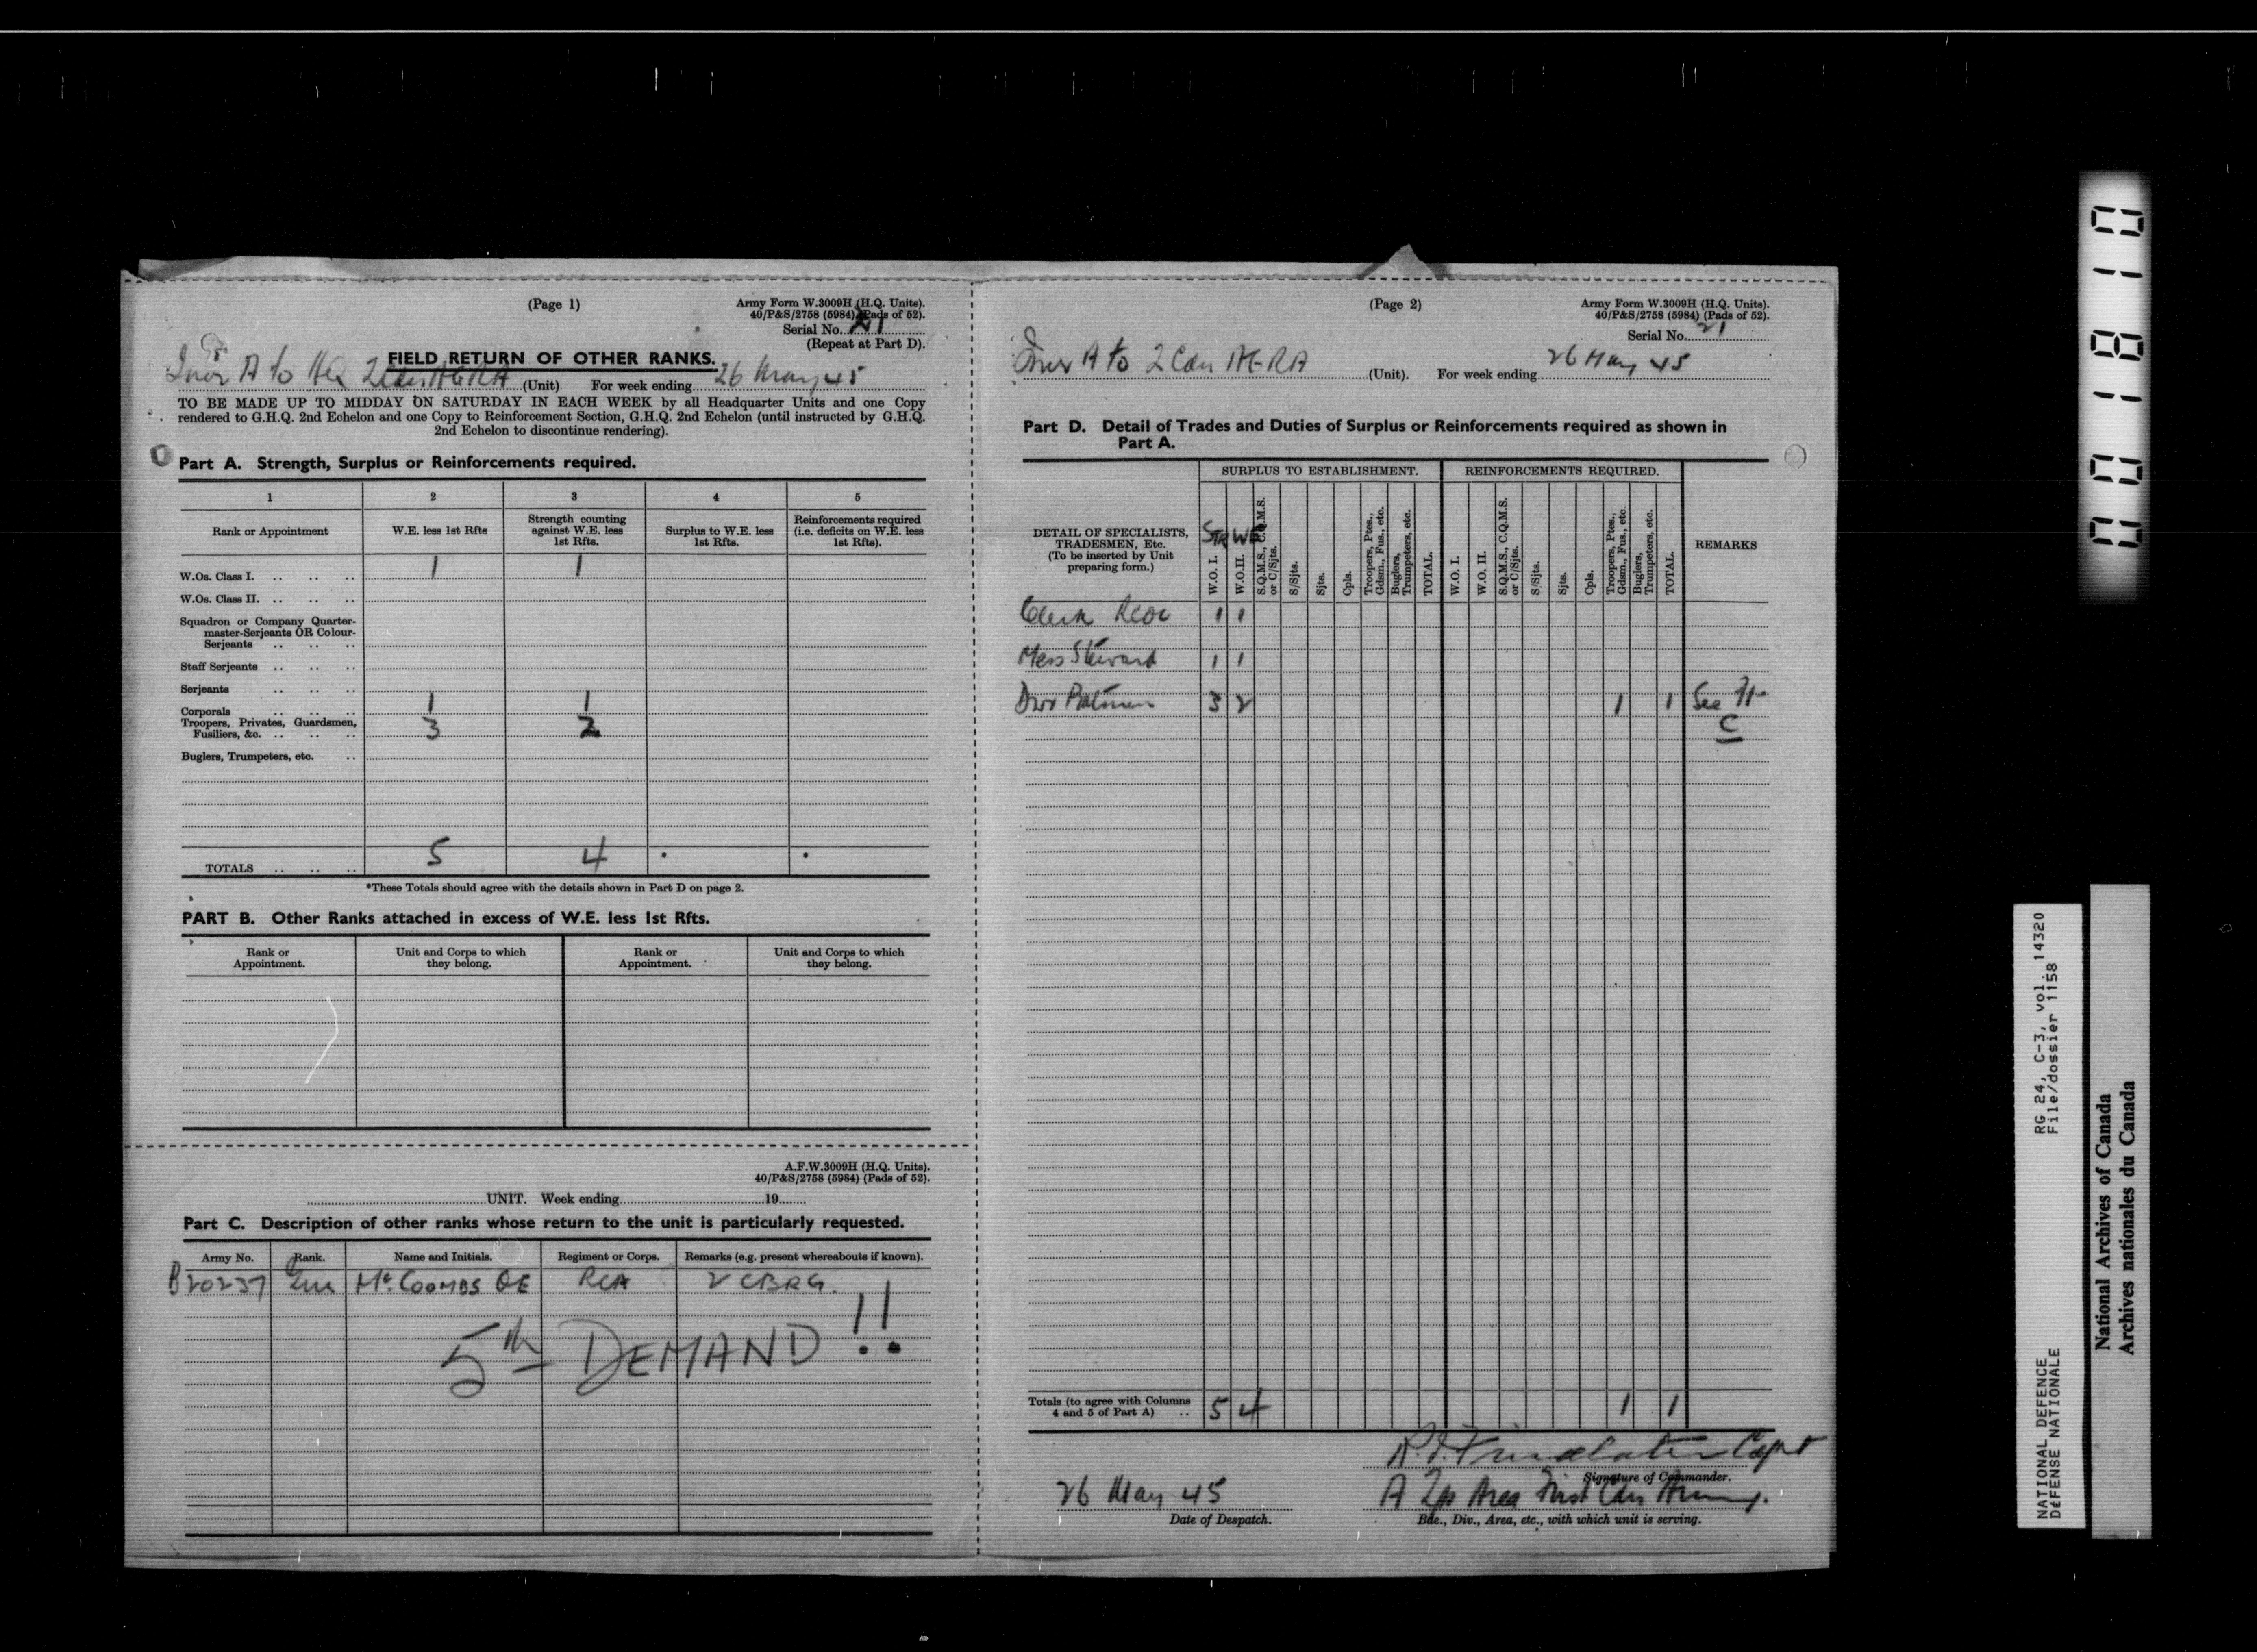 (Page 1)
Army Form W.3009H (H.Q. Units).
40/P&S/2758 (5984) (Pads of 52).
Serial No. 21
(Repeat at Part D).
FIELD RETURN OF OTHER RANKS.
A to HQ 2 Cdn AGRA (Unit) For week ending 26 May 45
TO BE MADE UP TO MIDDAY ON SATURDAY IN EACH WEEK by all Headquarter Units and one Copy
rendered to G.H.Q. 2nd Echelon and one Copy to Reinforcement Section, G.H.Q. 2nd Echelon (until instructed by G.H.Q.
2nd Echelon to discontinue rendering).
Part A. Strength, Surplus or Reinforcements required.
1 2 3 4 5
Rank or Appointment
W.E. less 1st Rfts
Strength counting
against W.E. less
1st Rfts.
Surplus to W.E. less
1st Rfts.
Reinforcements required
(i.e. deficits on W.E. less
1st Rfts).
W.Os. Class I. .. .. .. 1 1
W.Os. Class II. .. .. ..
Squadron or Company Quarter-
master-Serjeants OR Colour-
Serjeants .. .. ..
Staff Serjeants .. .. ..
Serjeants .. .. ..
Corporals .. .. .. 1 1
Troopers, Privates, Guardsmen,
Fusiliers, &c. .. .. .. 3 2
Buglers, Trumpeters, etc. ..
TOTALS .. .. .. 5 4
*These Totals should agree with the details shown in Part D on page 2.
PART B. Other Ranks attached in excess of W.E. less 1st Rfts.
Rank or
Appointment.
Unit and Corps to which
they belong.
Rank or
Appointment.
Unit and Corps to which
they belong.
A.F.W.3009H (H.Q. Units).
40/P&S/2758 (5984) (Pads of 52).
UNIT. Week ending 19
Part C. Description of other ranks whose return to the unit is particularly requested.
Army No. Rank. Name and Initials. Regiment or Corps. Remarks (e.g. present whereabouts if known).
B20237 Gnr McCOOMBS OE RCA 2 CBRG.
5th DEMAND!!
(Page 2)
Army Form W.3009H (H.Q. Units).
40/P&S/2758 (5984) (Pads of 52).
Serial No. 21
A to 2 Cdn AGRA (Unit). For week ending 26 May 45
Part D. Detail of Trades and Duties of Surplus or Reinforcements required as shown in
Part A.
DETAIL OF SPECIALISTS,
TRADESMEN, Etc.
(To be inserted by Unit
preparing form.)
SURPLUS TO ESTABLISHMENT.
STR WE
W.O. I.
W.O.II.
S.Q.M.S., C.Q.M.S.
or C/Sjts.
S/Sjts.
Sjts.
Cpls.
Troopers, Ptes.,
Gdsm., Fus., etc.
Buglers,
Trumpeters, etc.
TOTAL.
REINFORCEMENTS REQUIRED.
W.O. I.
W.O. II.
S.Q.M.S., C.Q.M.S.
or C/Sjts.
S/Sjts.
Sjts.
Cpls.
Troopers, Ptes.,
Gdsm., Fus., etc.
Buglers,
Trumpeters, etc.
TOTAL.
REMARKS
Clerk 1 1
Mess Steward 1 1
Dvr Batmen 3 2 1 1 See Pt
C
Totals (to agree with Columns
4 and 5 of Part A) .. 5 4 1 1
Capt
Signature of Commander.
26 May 45
Date of Despatch.
A Tps Area First Cdn Army.
Bde., Div., Area, etc., with which unit is serving.
001810
RG 24, C-3, vol. 14320
File/dossier 1158
NATIONAL DEFENCE
DÉFENSE NATIONALE
National Archives of Canada
Archives nationales du Canada